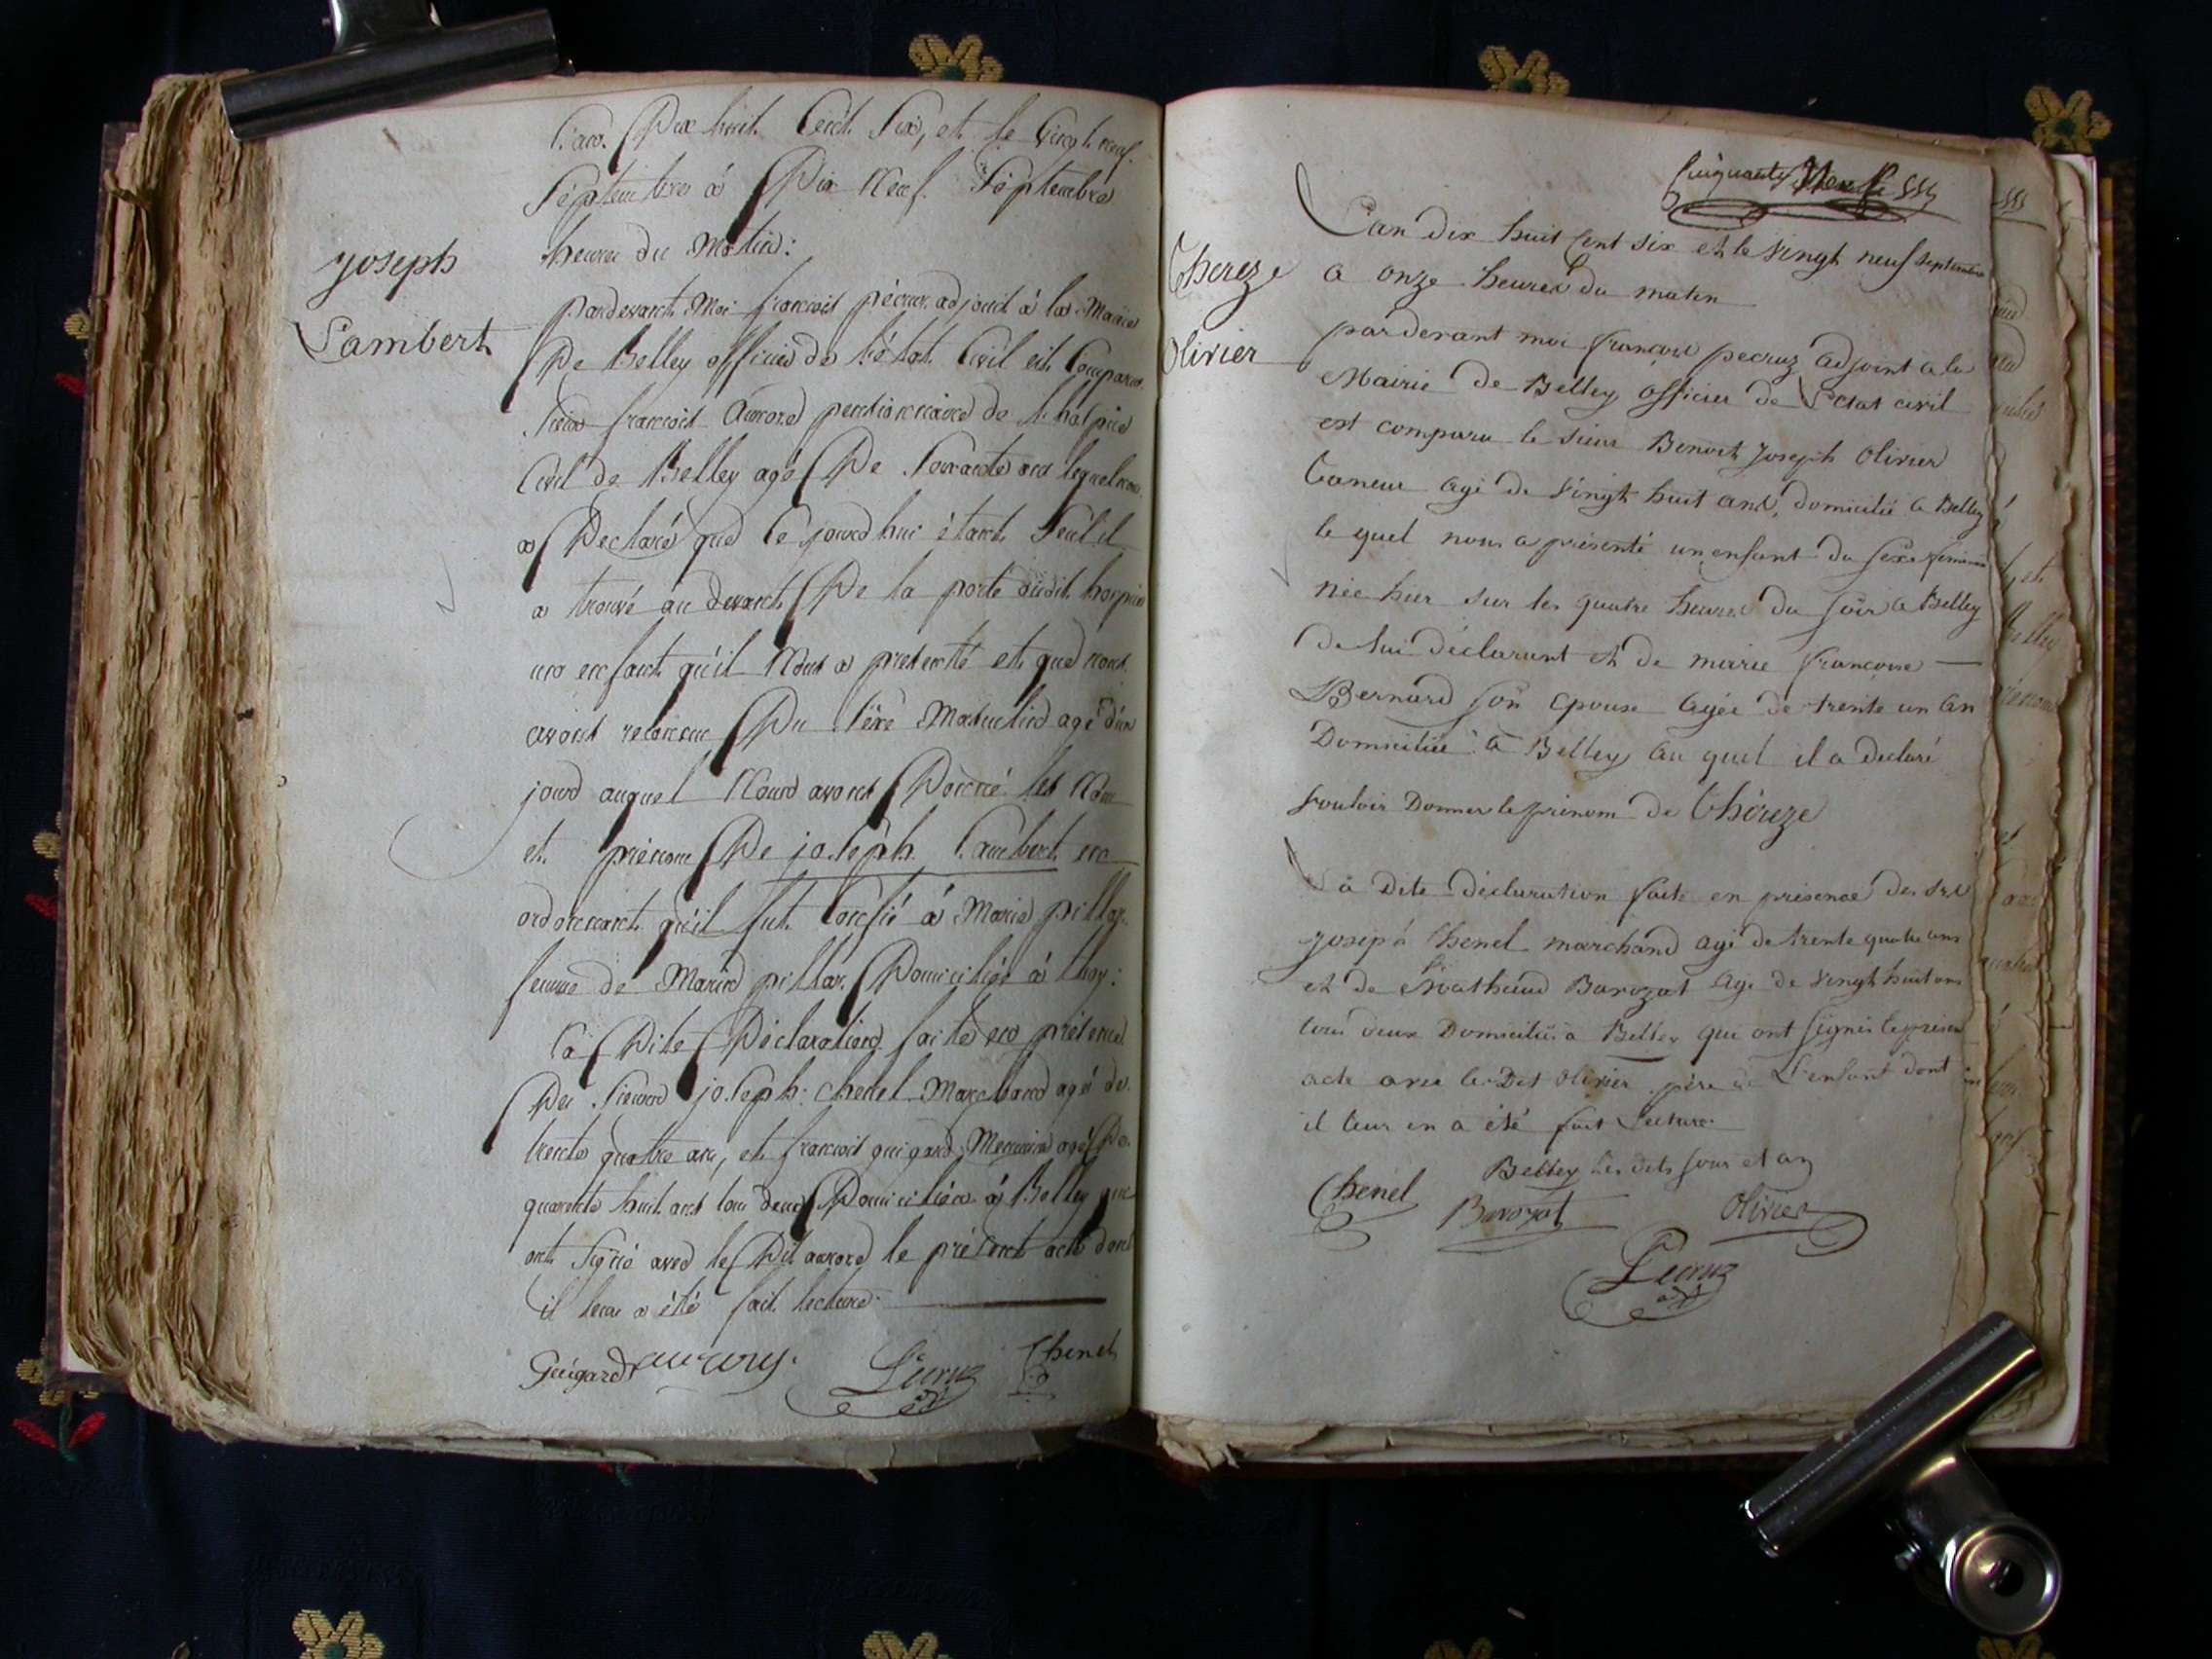 L'an Dix huit Cent Six, et le Vingt neuf
Septembre à Dix Neuf Septembre
heures du Matin:
Joseph
Lambert
pardevant Moi françois pécruz adjoint à la Mairie
De Belley officier de l'état Civil est Comparu
Sieur françois pensionnaire de l'hospice
Civil de Belley agé De Soixante ans lequel nous
a Déclaré que Cejourd'hui étant Seul il
a trouvé au devant De la porte dudit hospice
un enfant qu'il Nous a présenté et que nous
avons reconnu Du Séxe Masculin agé d'un
jour auquel Nous avons Donné les Nom
et prénom De joseph Lambert en
ordonnant qu'il fut Confié à Marie pillar
femme de pillar Domiciliée à
La Dite Déclaration faite en présence
Des Sieurs joseph chenel Marchand agé de
trente quatre ans, et françois guigard Menuisier agé De
quarante huit ans tous deux Domiciliés à Belley qui
ont Signé avec le Dit le présent acte dont
il leur a été fait lecture.
Guigard
Pecruz
Chenel
Cinquante Neuf
L'an dix huit Cent six et le vingt neuf septembre
a onze heures du matin
Thereze
Olivier
pardevant moi françois pecruz adjoint a la
Mairie de Belley officier de L'etat civil
est comparu le sieur Benoit Joseph Olivier
Taneur agé de vingt huit ans, domicilié a Belley
le quel nous a présenté un enfant du sexe feminin
née hier sur les quatre heures du soir a Belley
De lui déclarant et de marie françoise
Bernard son epouse agée de trente un an
Domiciliée a Belley au quel il a declaré
vouloir Donner le prénom de Théreze
La Dite déclaration faite en présence des srs
Joseph Chenel marchand agé de trente quatre ans
et de Mathieu Barozat agé de vingt huit ans
tous deux Domiciliés a Belley qui ont signés le présent
acte avec le Dit Olivier père de L'enfant dont
il leur en a été fait Lecture.
Belley les dits jour et an
Chenel
Barozat
Olivier
Pecruz